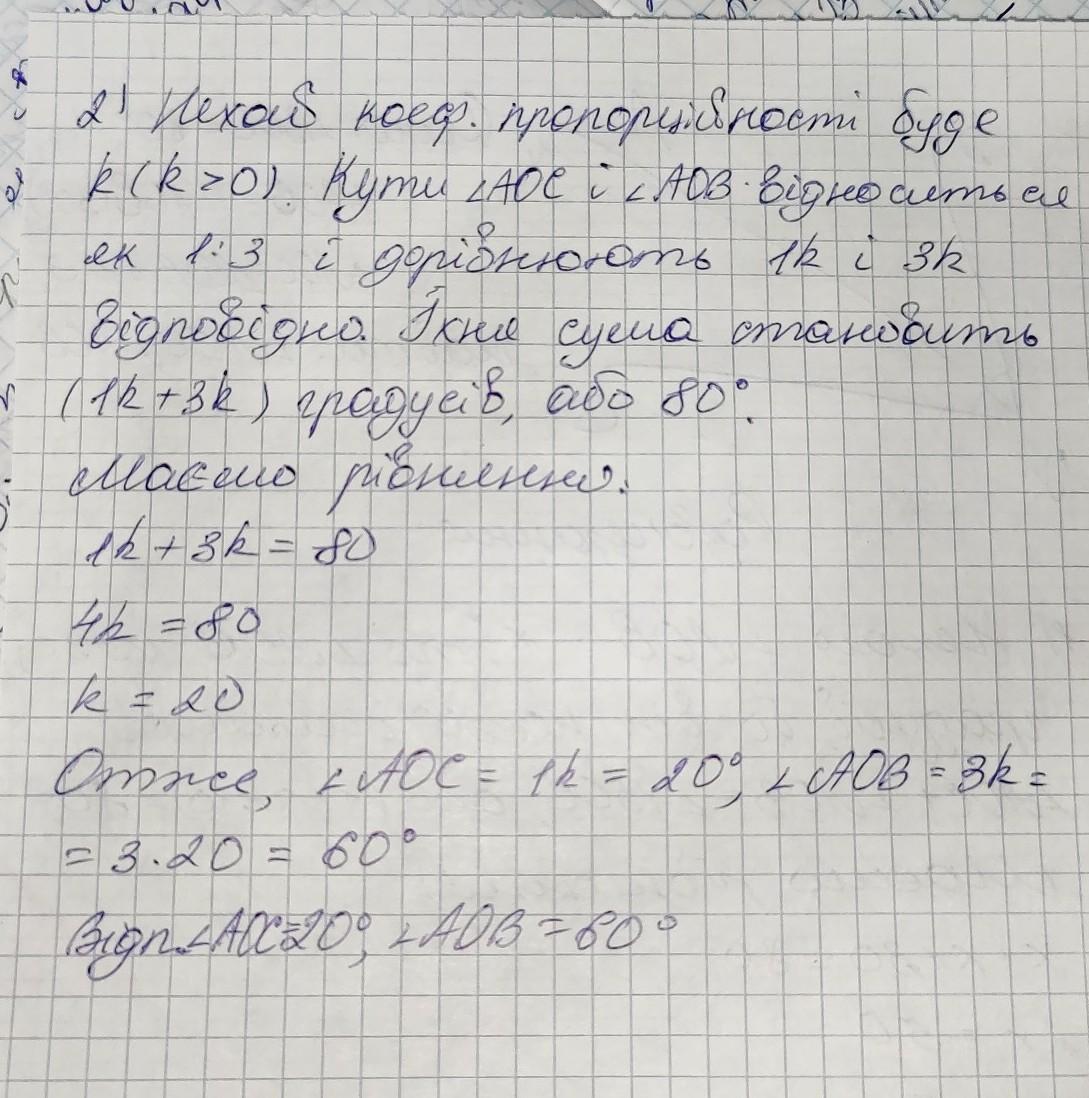 2) Нехай коеф. пропорційності буде
k (k > 0). Кути ∠AOC і ∠AOB відносяться
як 1:3 і дорівнюють 1k і 3k
відповідно. Їхня сума становить
(1k + 3k) градусів, або 80°.
Маємо рівняння:
1k + 3k = 80
4k = 80
k = 20
Отже, ∠AOC = 1k = 20°, ∠AOB = 3k =
= 3·20 = 60°
Відп. ∠AOC=20°, ∠AOB = 60°